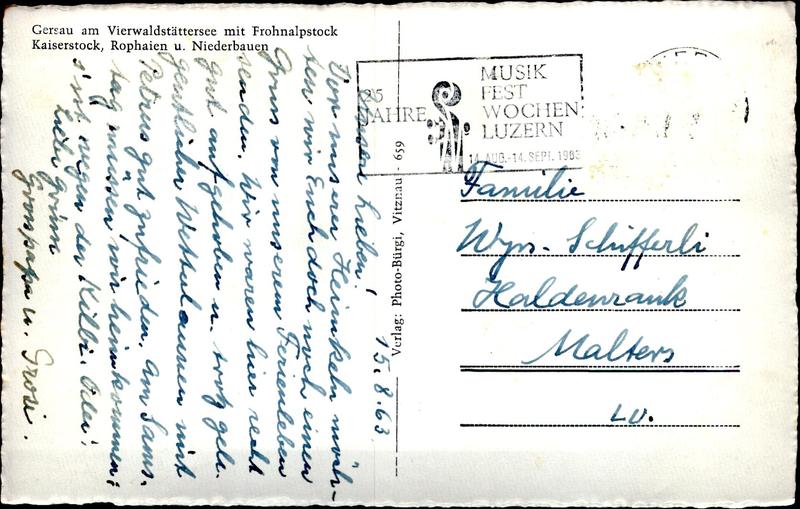 Gersau am Vierwaldstättersee mit Frohnalpstock
Kaiserstock, Rophaien u. Niederbauen
15.8.63.
Lieben!
Vor unserer Heimkehr möch-
ten wir Euch doch noch einen
Gruss von unserem Ferienleben
senden. Wir waren hier recht
gut aufgehoben u. trotz gele-
gentlichen Wetterlaunen mit
Petrus gut zufrieden. Am Sams-
tag müssen wir heimkommen;
s'ist wegen der Kilbi. Oder!
Liebi Grüss
Grosspapa u. Grosi.
Verlag: Photo-Bürgi, Vitznau - 659
25
JAHRE
MUSIK
FEST
WOCHEN
LUZERN
14. AUG.-14. SEPT. 1963
Familie
Wyss-Schifferli
Haldenrank
Malters
LU.